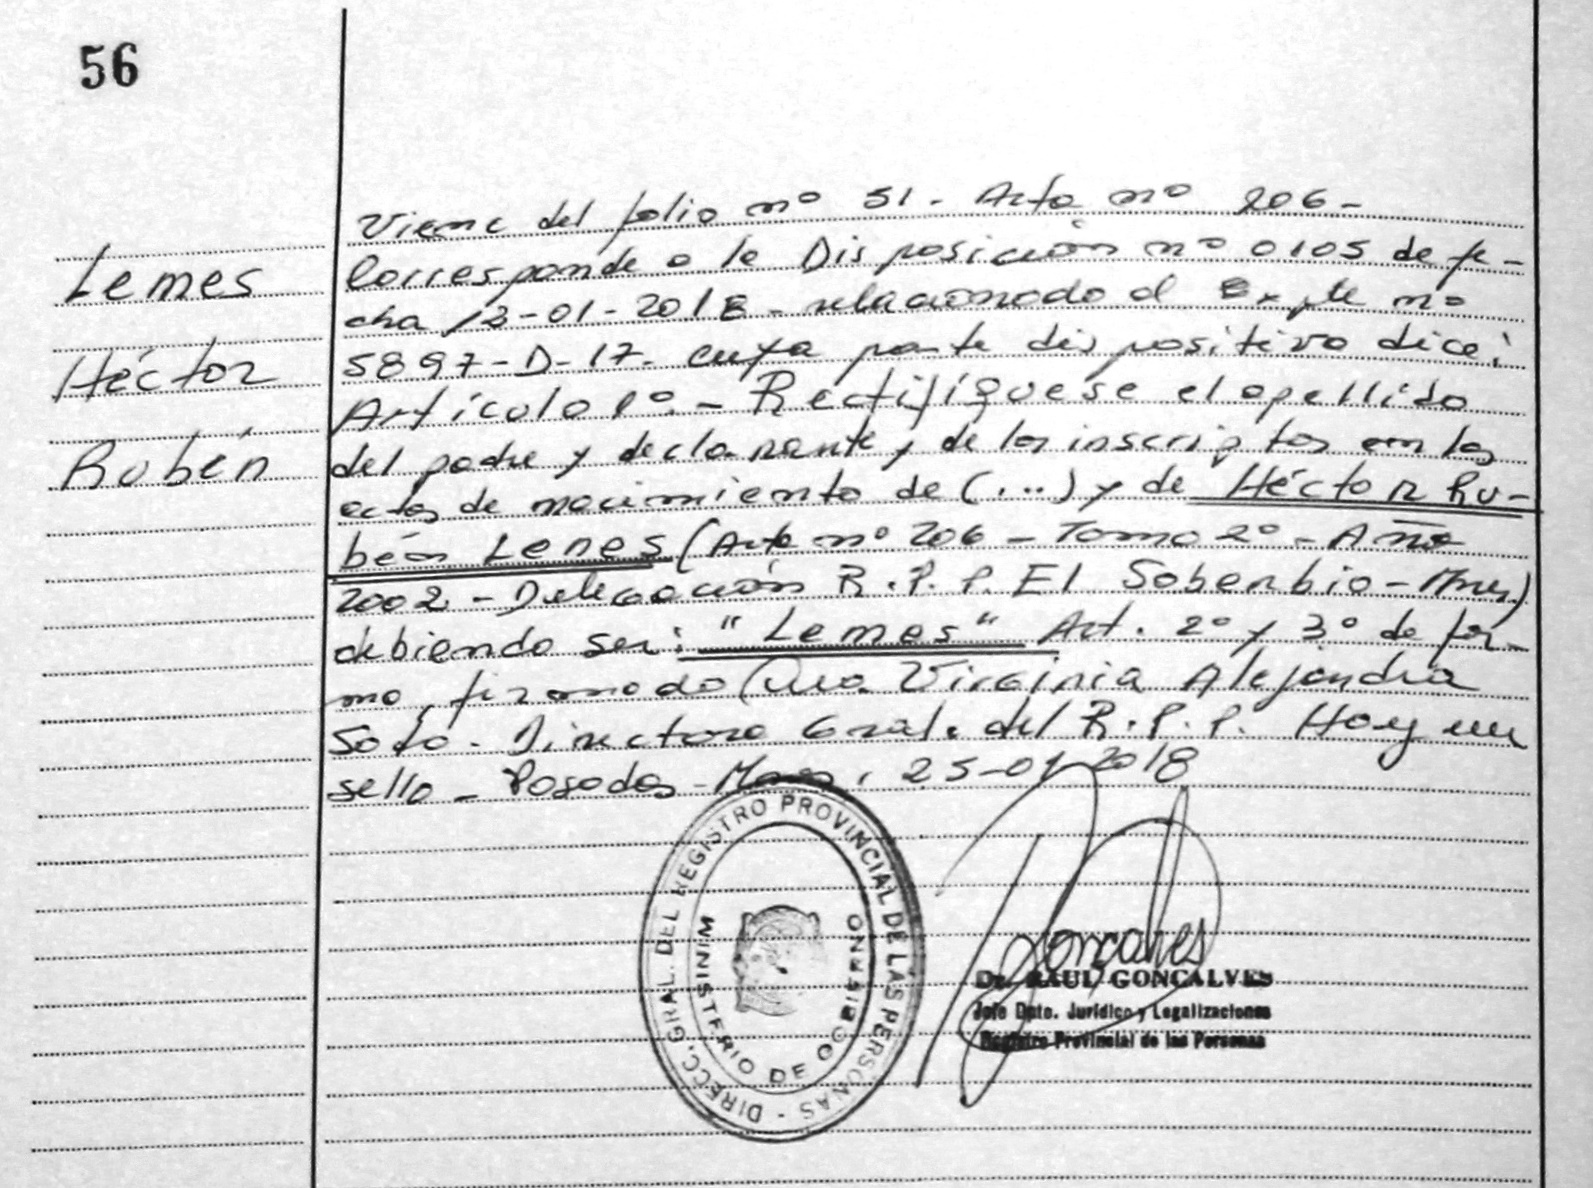 56
Lemes
Héctor
Rubén
Viene del folio nº 51. Acta nº 206-
Corresponde a la Disposición nº 0105 de fe-
cha 12-01-2018- relacionado al Expte nº
5897-D-17. cuya parte dispositiva dice:
Artículo 1º.- Rectifíquese el apellido
del padre y declarante y de los inscriptos en las
actas de nacimiento de (...) y de Héctor Ru-
bén Lenes (Acta nº 206 - Tomo 2º - Año
2002 - Delegación R.P.P. El Soberbio - Mnes)
debiendo ser: "Lemes" Art. 2º y 3º de for-
ma, firmado Dra. Virginia Alejandra
Soto. Directora Gral. del R.P.P. Hay un
sello - Posadas - Mnes, 25-01-2018
DIRECC. GRAL. DEL REGISTRO PROVINCIAL DE LAS PERSONAS -
MINISTERIO DE GOBIERNO
Goncalves
Dr. RAUL GONCALVES
Jefe Dpto. Jurídico y Legalizaciones
Registro Provincial de las Personas